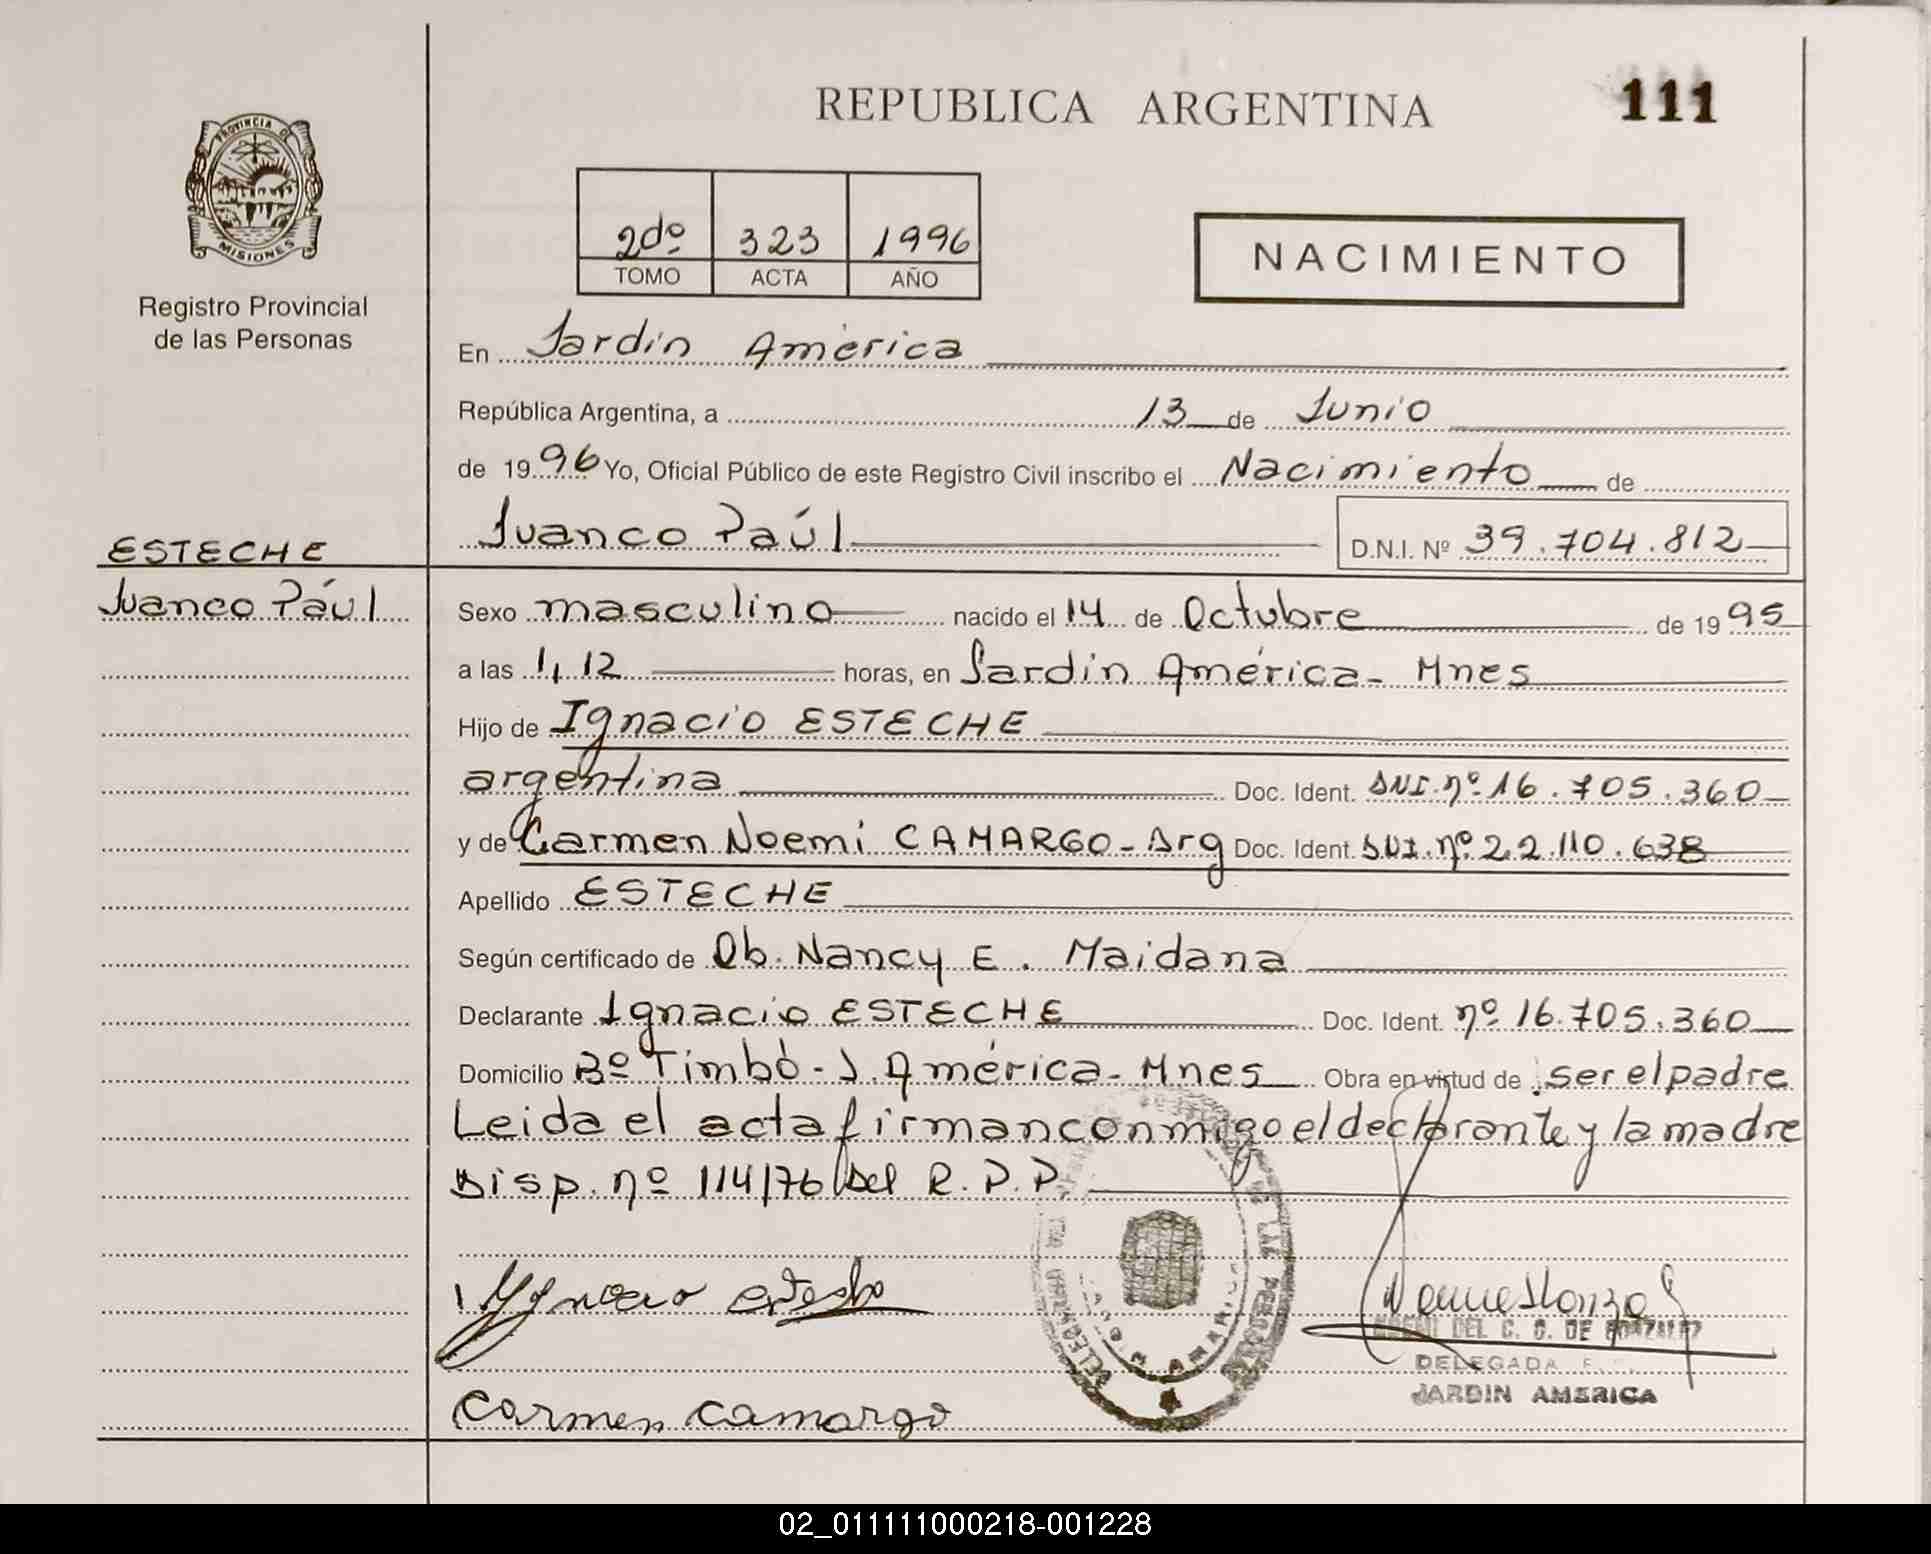 REPUBLICA ARGENTINA
111
PROVINCIA DE
MISIONES
Registro Provincial
de las Personas
2do 323 1996
TOMO ACTA AÑO
NACIMIENTO
En Jardín América
República Argentina, a 13 de Junio
de 1996 Yo, Oficial Público de este Registro Civil inscribo el Nacimiento de
Juanco Paúl D.N.I. Nº 39.704.812
ESTECHE
Juanco Pául
Sexo masculino nacido el 14 de Octubre de 1995
a las 1,12 horas, en Jardín América - Mnes
Hijo de Ignacio ESTECHE
argentina Doc. Ident. DNI. nº 16.705.360
y de Carmen Noemi CAMARGO - Arg Doc. Ident. DNI. nº 22.110.638
Apellido ESTECHE
Según certificado de Ob. Nancy E. Maidana
Declarante Ignacio ESTECHE Doc. Ident. nº 16.705.360
Domicilio Bº Timbó - J. América - Mnes Obra en virtud de ser el padre
Leida el acta firman conmigo el declarante y la madre
Disp. nº 114/76 del R.P.P.
DEL C. G. DE GONZALEZ
DELEGADA
JARDIN AMERICA
Carmen Camargo
02_011111000218-001228